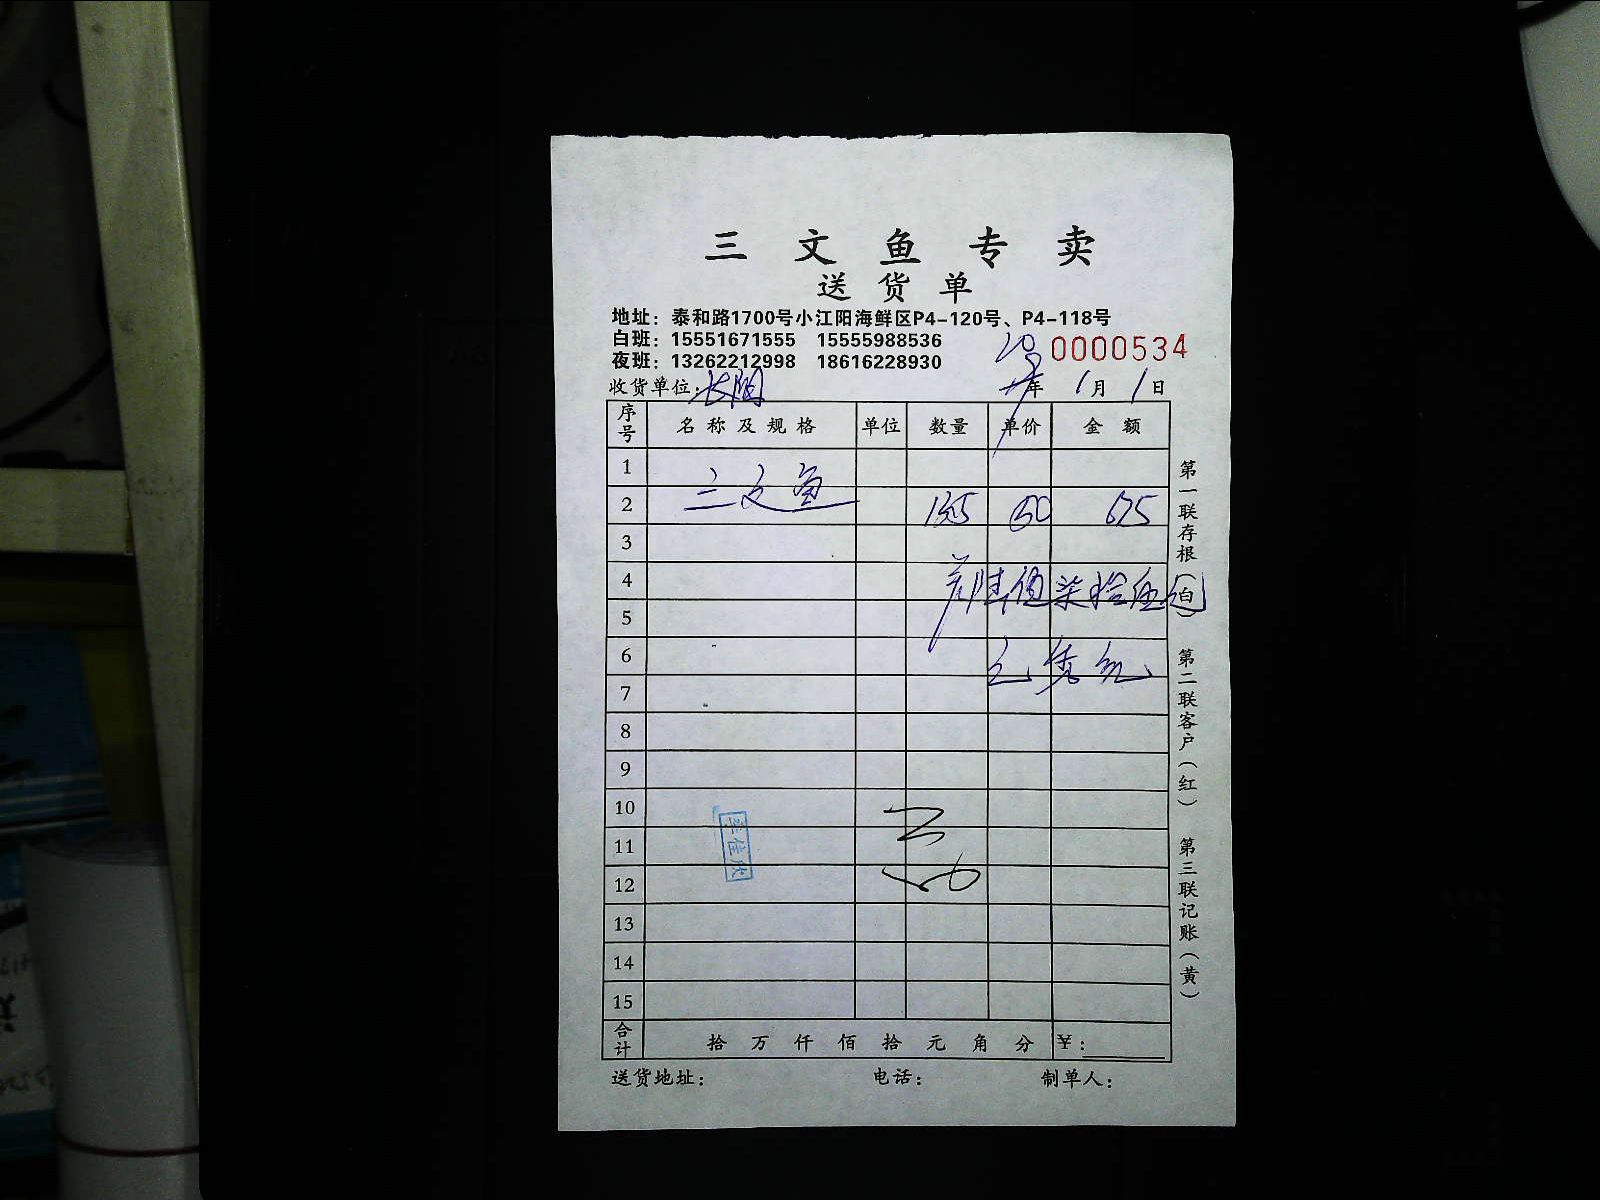 三文鱼专卖
送货单
地址：泰和路1700号小江阳海鲜区P4-120号、P4-118号
白班：15551671555 15555988536
夜班：13262212998 18616228930
0000534
收货单位：长阳 年 1月1日
序号 名称及规格 单位 数量 单价 金额
1
2 三文鱼 13.5 50 675
3
4 陆佰柒拾伍元
5
6
7
8
9
10
11
12
13
14
15
合计 拾万仟佰拾元角分 ¥：
送货地址： 电话： 制单人：
第一联存根（白） 第二联客户（红） 第三联记账（黄）